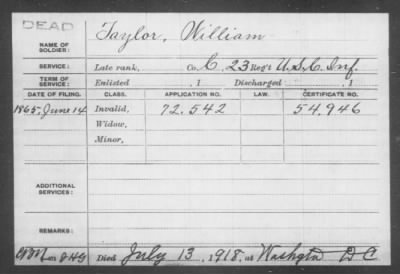 DEAD
NAME OF SOLDIER: Taylor, William
SERVICE: Late rank, Co. C, 23 Reg't U.S.C. Inf.
TERM OF SERVICE: Enlisted , 1 Discharged , 1
DATE OF FILING. CLASS. APPLICATION NO. LAW. CERTIFICATE NO.
1865, June 14 Invalid, 72.542 54.946
Widow,
Minor,
ADDITIONAL SERVICES:
REMARKS:
Died July 13, 1918, at Washgtn D C